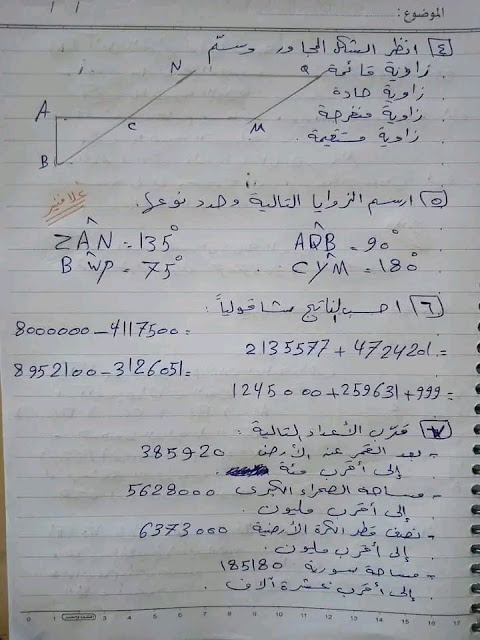 الموضوع:
٤ انظر الشكل المجاور وسمّ
زاوية قائمة
زاوية حادة
زاوية منفرجة
زاوية مستقيمة
N Q
A C M
B
٥ ارسم الزوايا التالية وحدد نوعها.
ZÂN = 135° AQ̂B = 90°
BŴP = 75° CŶM = 180°
٦ احسب الناتج شاقولياً:
8000000 - 4117500 =
2135577 + 4724201 =
8952100 - 3126051 =
1245000 + 259631 + 999 =
٧ قرّب الأعداد التالية:
- بعد القمر عن الأرض 385920
إلى أقرب مئة
- مساحة الصحراء الكبرى 5628000
إلى أقرب مليون.
- نصف قطر الكرة الأرضية 6373000
إلى أقرب مليون.
- مساحة سورية 185180
إلى أقرب عشرة آلاف.
0 1 2 3 4 5 6 7 8 9 10 11 12 13 14 15 16 17